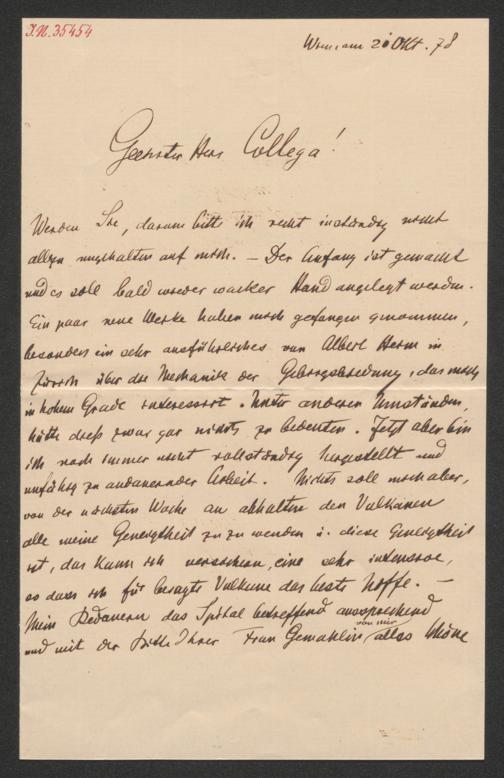 I.N. 35454
20 Okt. 78
Geehrter Herr Collega!
Werden Sie, darum bitte ich recht inständig nicht
allzu ungehalten auf mich. — Der Anfang ist gemacht
und es soll bald wieder wacker Hand angelegt werden.
Ein paar neue Werke haben mich gefangen genommen,
besonders ein sehr ausführliches von Albert Heim in
Zürich über die Mechanik der Gebirgsbildung, das mich
in hohem Grade interessirt. Unter anderen Umständen,
hätte dieß zwar gar nichts zu bedeuten. Jetzt aber bin
ich noch immer nicht vollständig hergestellt und
unfähig zu andauernder Arbeit. Nichts soll mich aber,
von der nächsten Woche an abhalten den Vulkanen
alle meine Geneigtheit zu zu wenden u. diese Geneigtheit
ist, das kann ich versichern, eine sehr intensive,
so dass ich für besagte Vulkane das beste hoffe. —
Mein Bedauern das Spital betreffend aussprechend
und mit der Bitte Ihrer Frau Gemahlin von mir alles Schöne